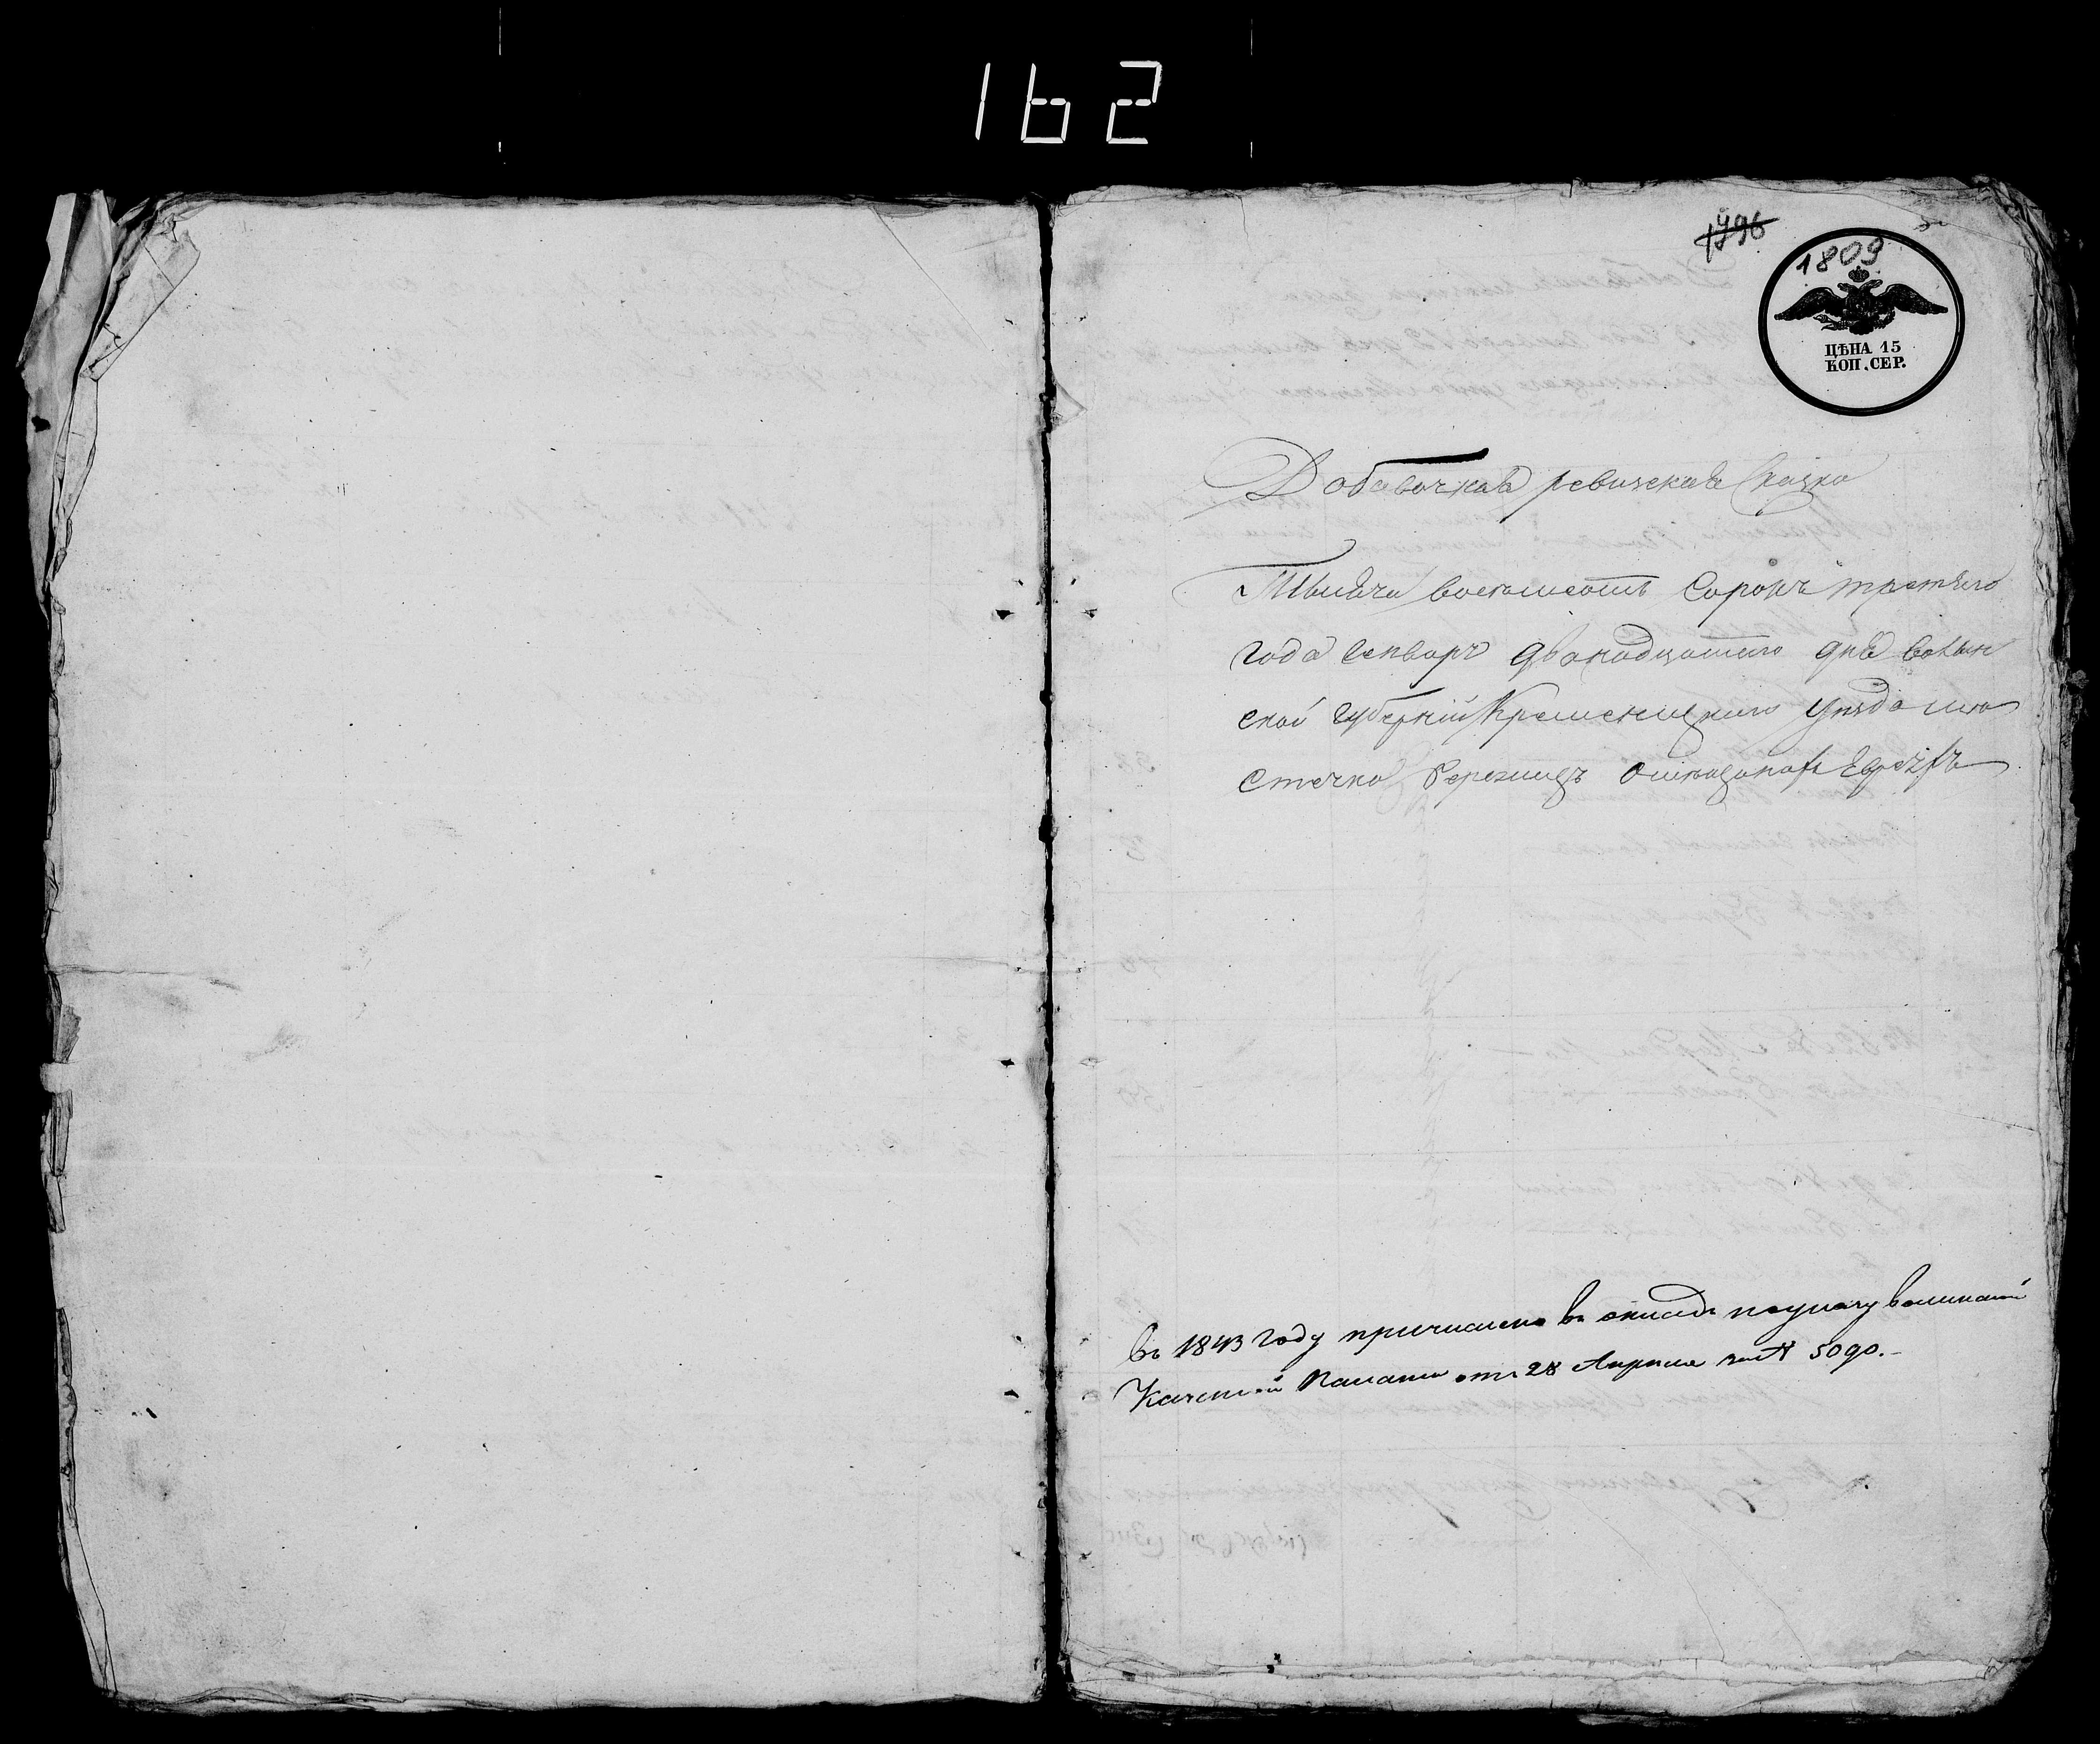 162
1796
1809
ЦѢНА 15
КОП. СЕР.
Добавочная ревизская сказка
Тысяча восемьсотъ сорокъ третьего
года генваря двонадцатого дня волын
ской губерніи Кременецкого уезда ме
стечко Бережецъ о мещанахъ Евреяхъ
въ 1843 году причислено въ окладъ по указу волынской
Казенной Палаты отъ 28 Апреля за №